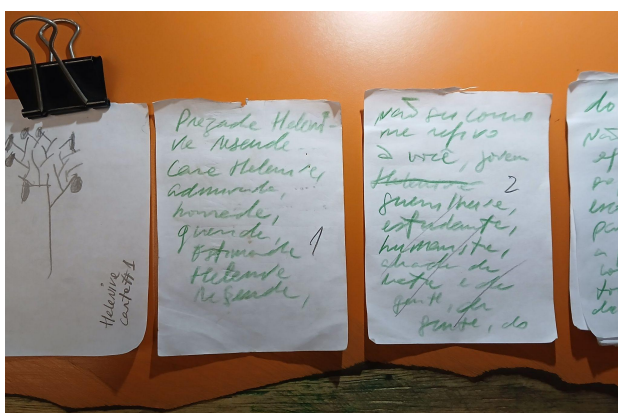 Helenira
carta #1
Prezada Heleni-
ra Resende
Cara Helenira,
admirada, ...
honrada,
querida,
estimada
Helenira
Resende,
1
Não sei como
me refiro
à você, jovem
Helenira
2
guerrilheira,
estudante,
humanista,
amada da
luta e da
gente, da
gente, do
do
Não